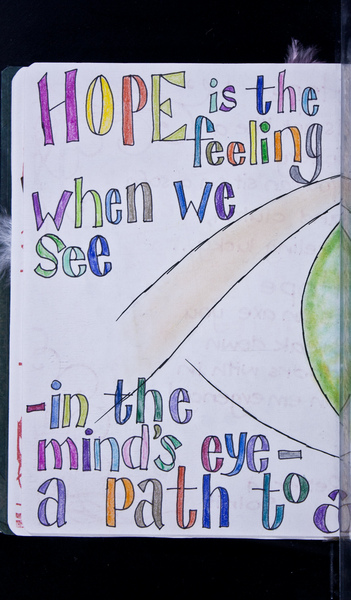 HOPE is the
feeling
when we
see
-in the
mind's eye-
a path to a